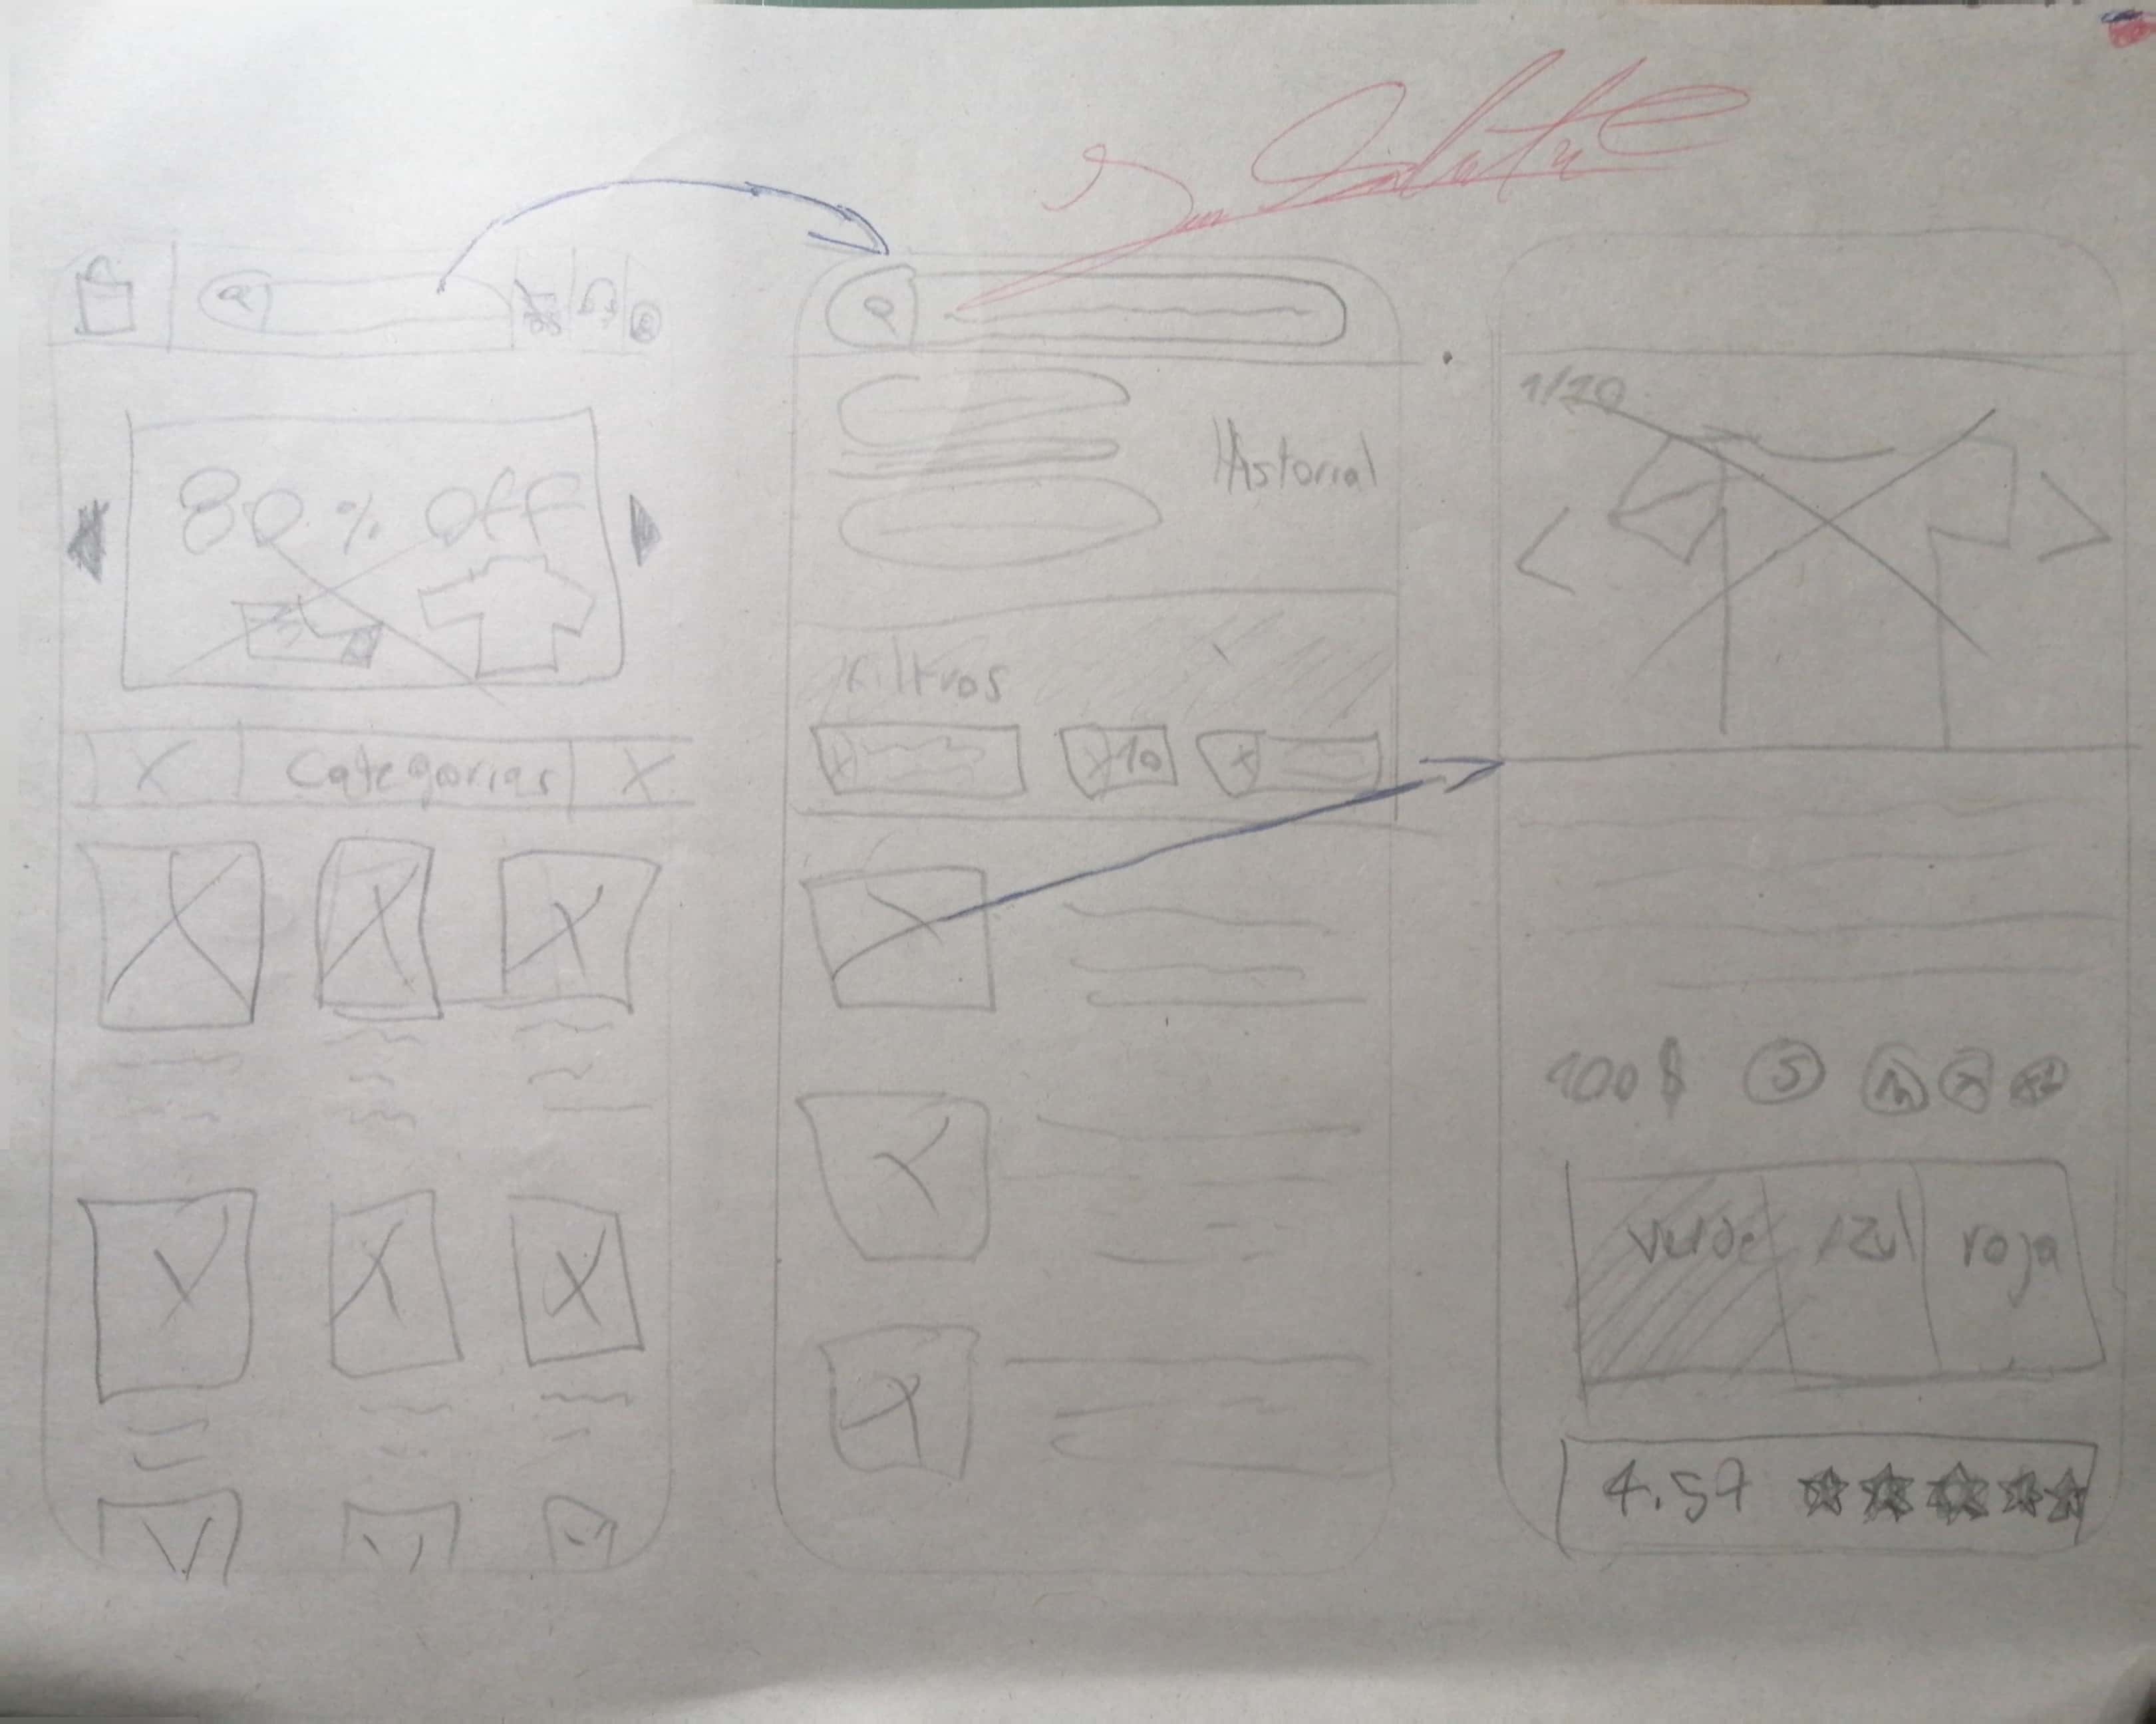 80 % off
Categorias
Historial
Filtros
10
1/10
100 $ S M
verde azul roja
4.57